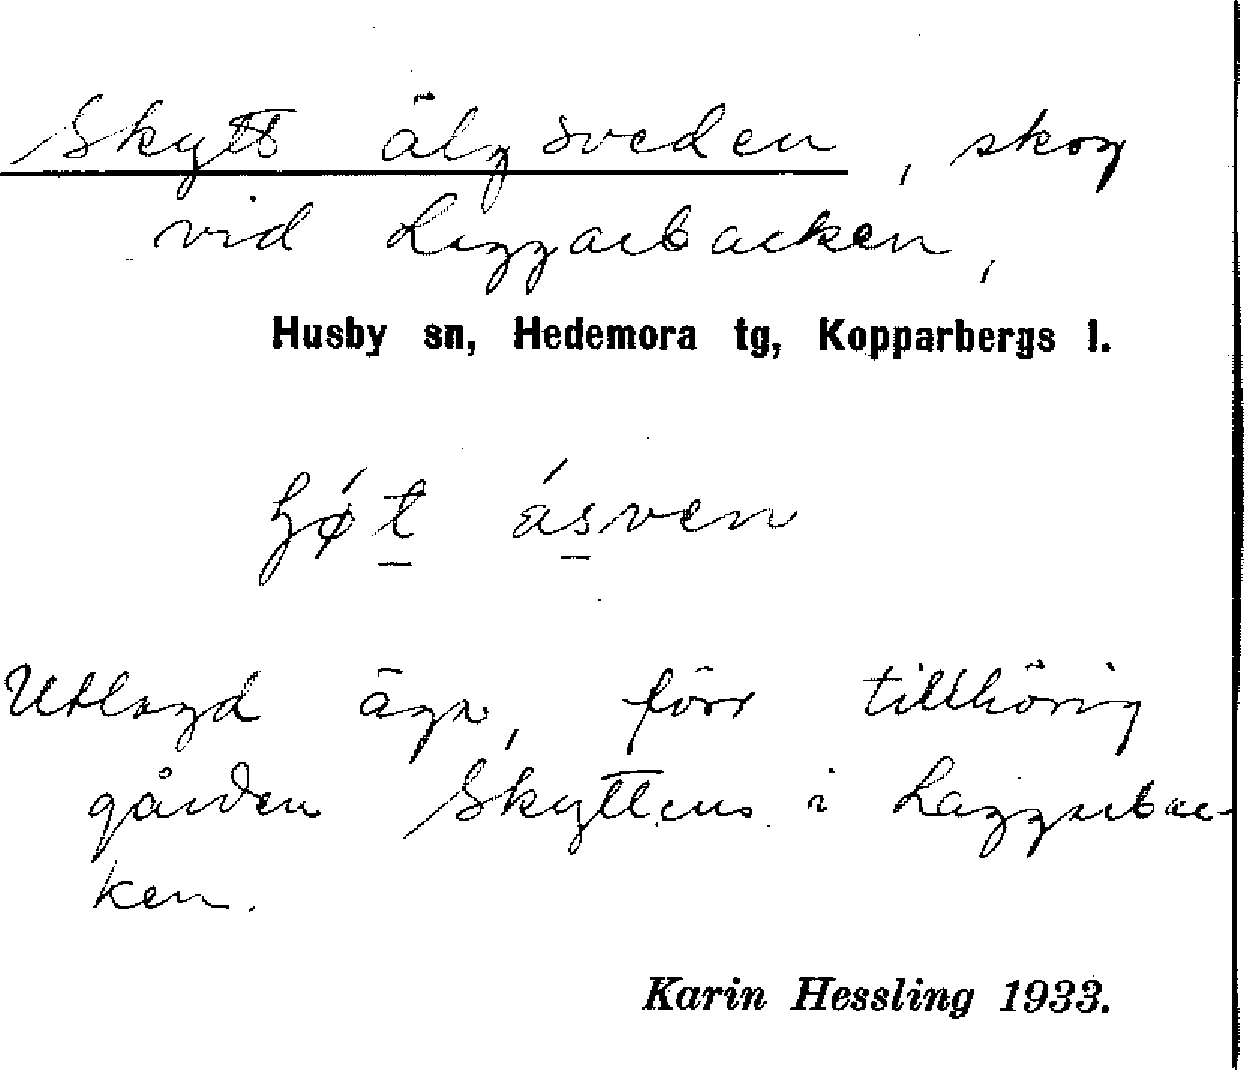 Skytts älgsveden, skog
vid Laggarbacken,
Husby sn, Hedemora tg, Kopparbergs l.
ásven
Utlagd äga, förr tillhörig
gården Skyttens i Laggarbac-
ken.
Karin Hessling 1933.